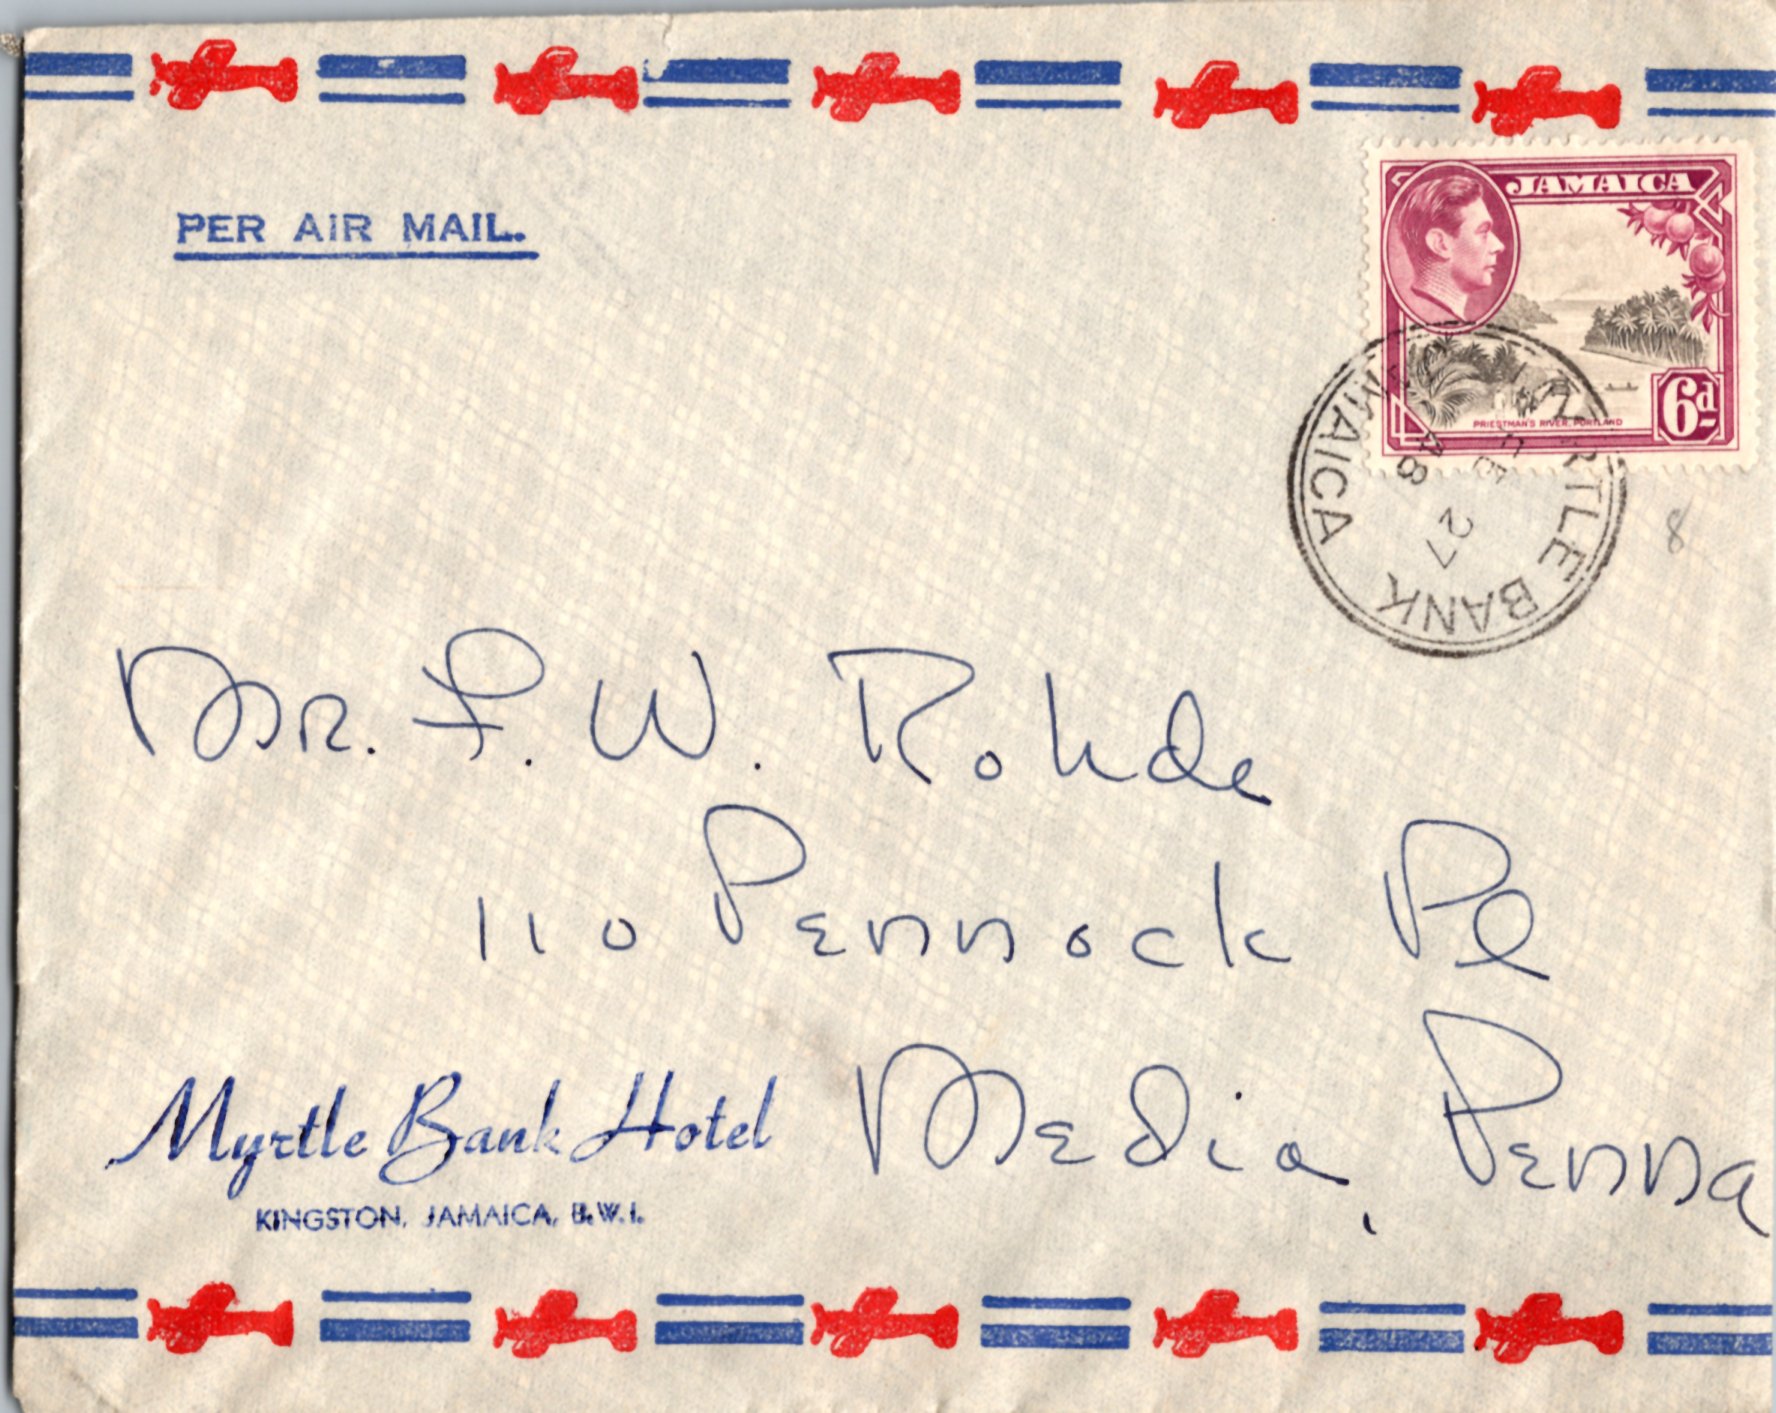 PER AIR MAIL.
JAMAICA
6d
PRIESTMAN'S RIVER, PORTLAND
MYRTLE BANK
JAMAICA
27
48
8
MR. F. W. Rohde
110 Pennock Pl
Media, Penna
Myrtle Bank Hotel
KINGSTON, JAMAICA, B.W.I.